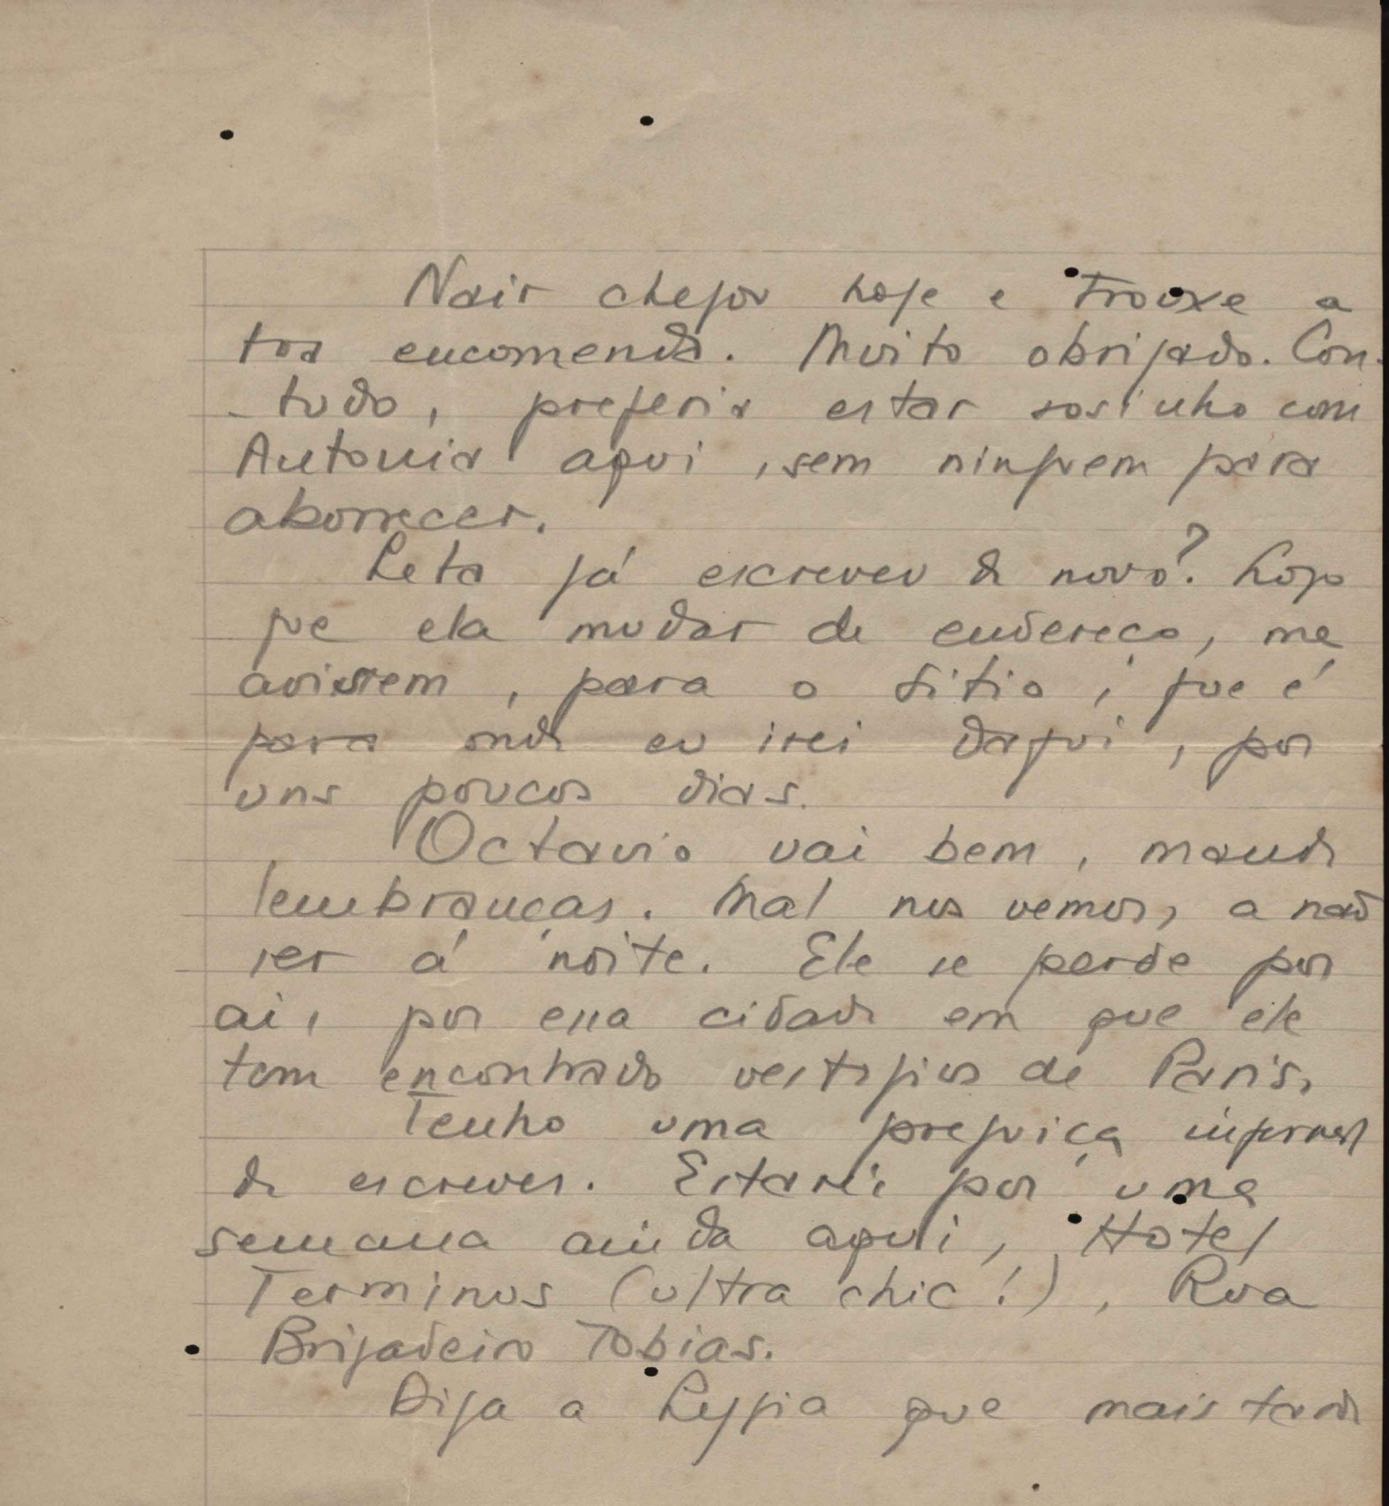 Nair chegou hoje e trouxe a
tua encomenda. Muito obrigado. Con-
-tudo, preferia estar sosinho com
Antonia aqui, sem ninguem para
aborrecer.
Leta já escreveu de novo? Logo
que ela mudar de endereço, me
avisem, para o sitio, que é
para onde eu irei daqui, por
uns poucos dias.
Octavio vai bem, manda
lembranças. Mal nos vemos, a não
ser á noite. Ele se perde por
ai, por essa cidade em que ele
tem encontrado vestigios de Paris.
Tenho uma preguiça infernal
de escrever. Estarei por uma
semana ainda aqui, Hotel
Terminus (ultra chic!), Rua
Brigadeiro Tobias.
Diga a Lygia que mais tarde